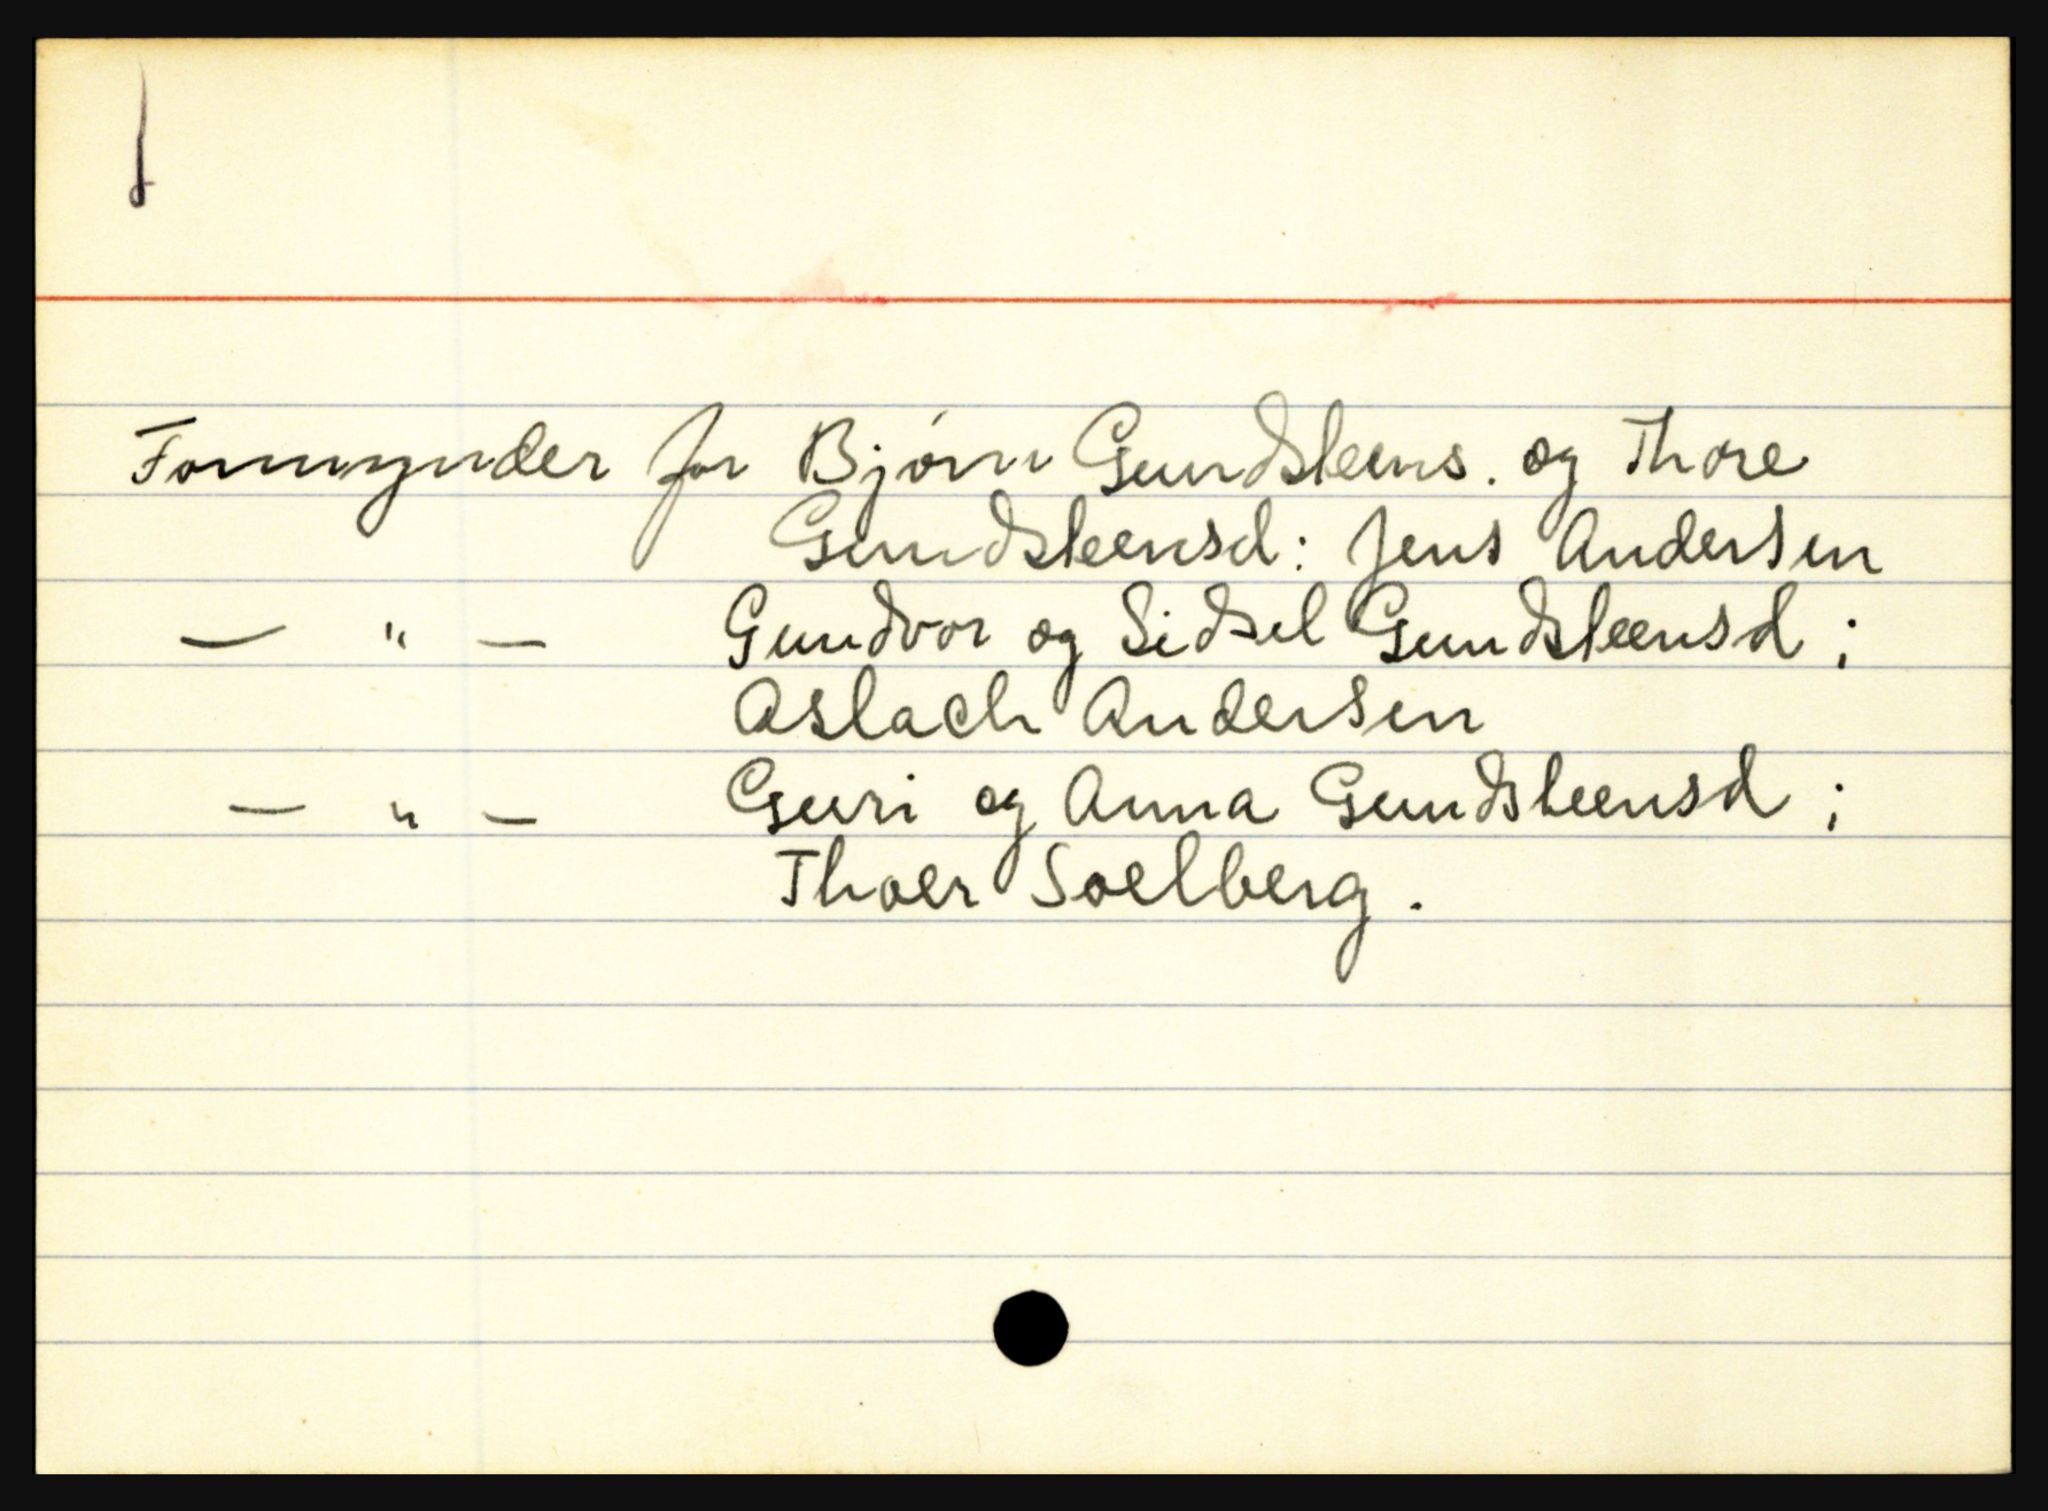 Formynder for Bjørn Gundsteens. og Thore
Gundsteensd: Jens Andersen
— " — Gundvor og Sidsel Gundsteensd;
Aslach Andersen
— " — Guri og Anna Gundsteensd;
Thoer Soelberg.